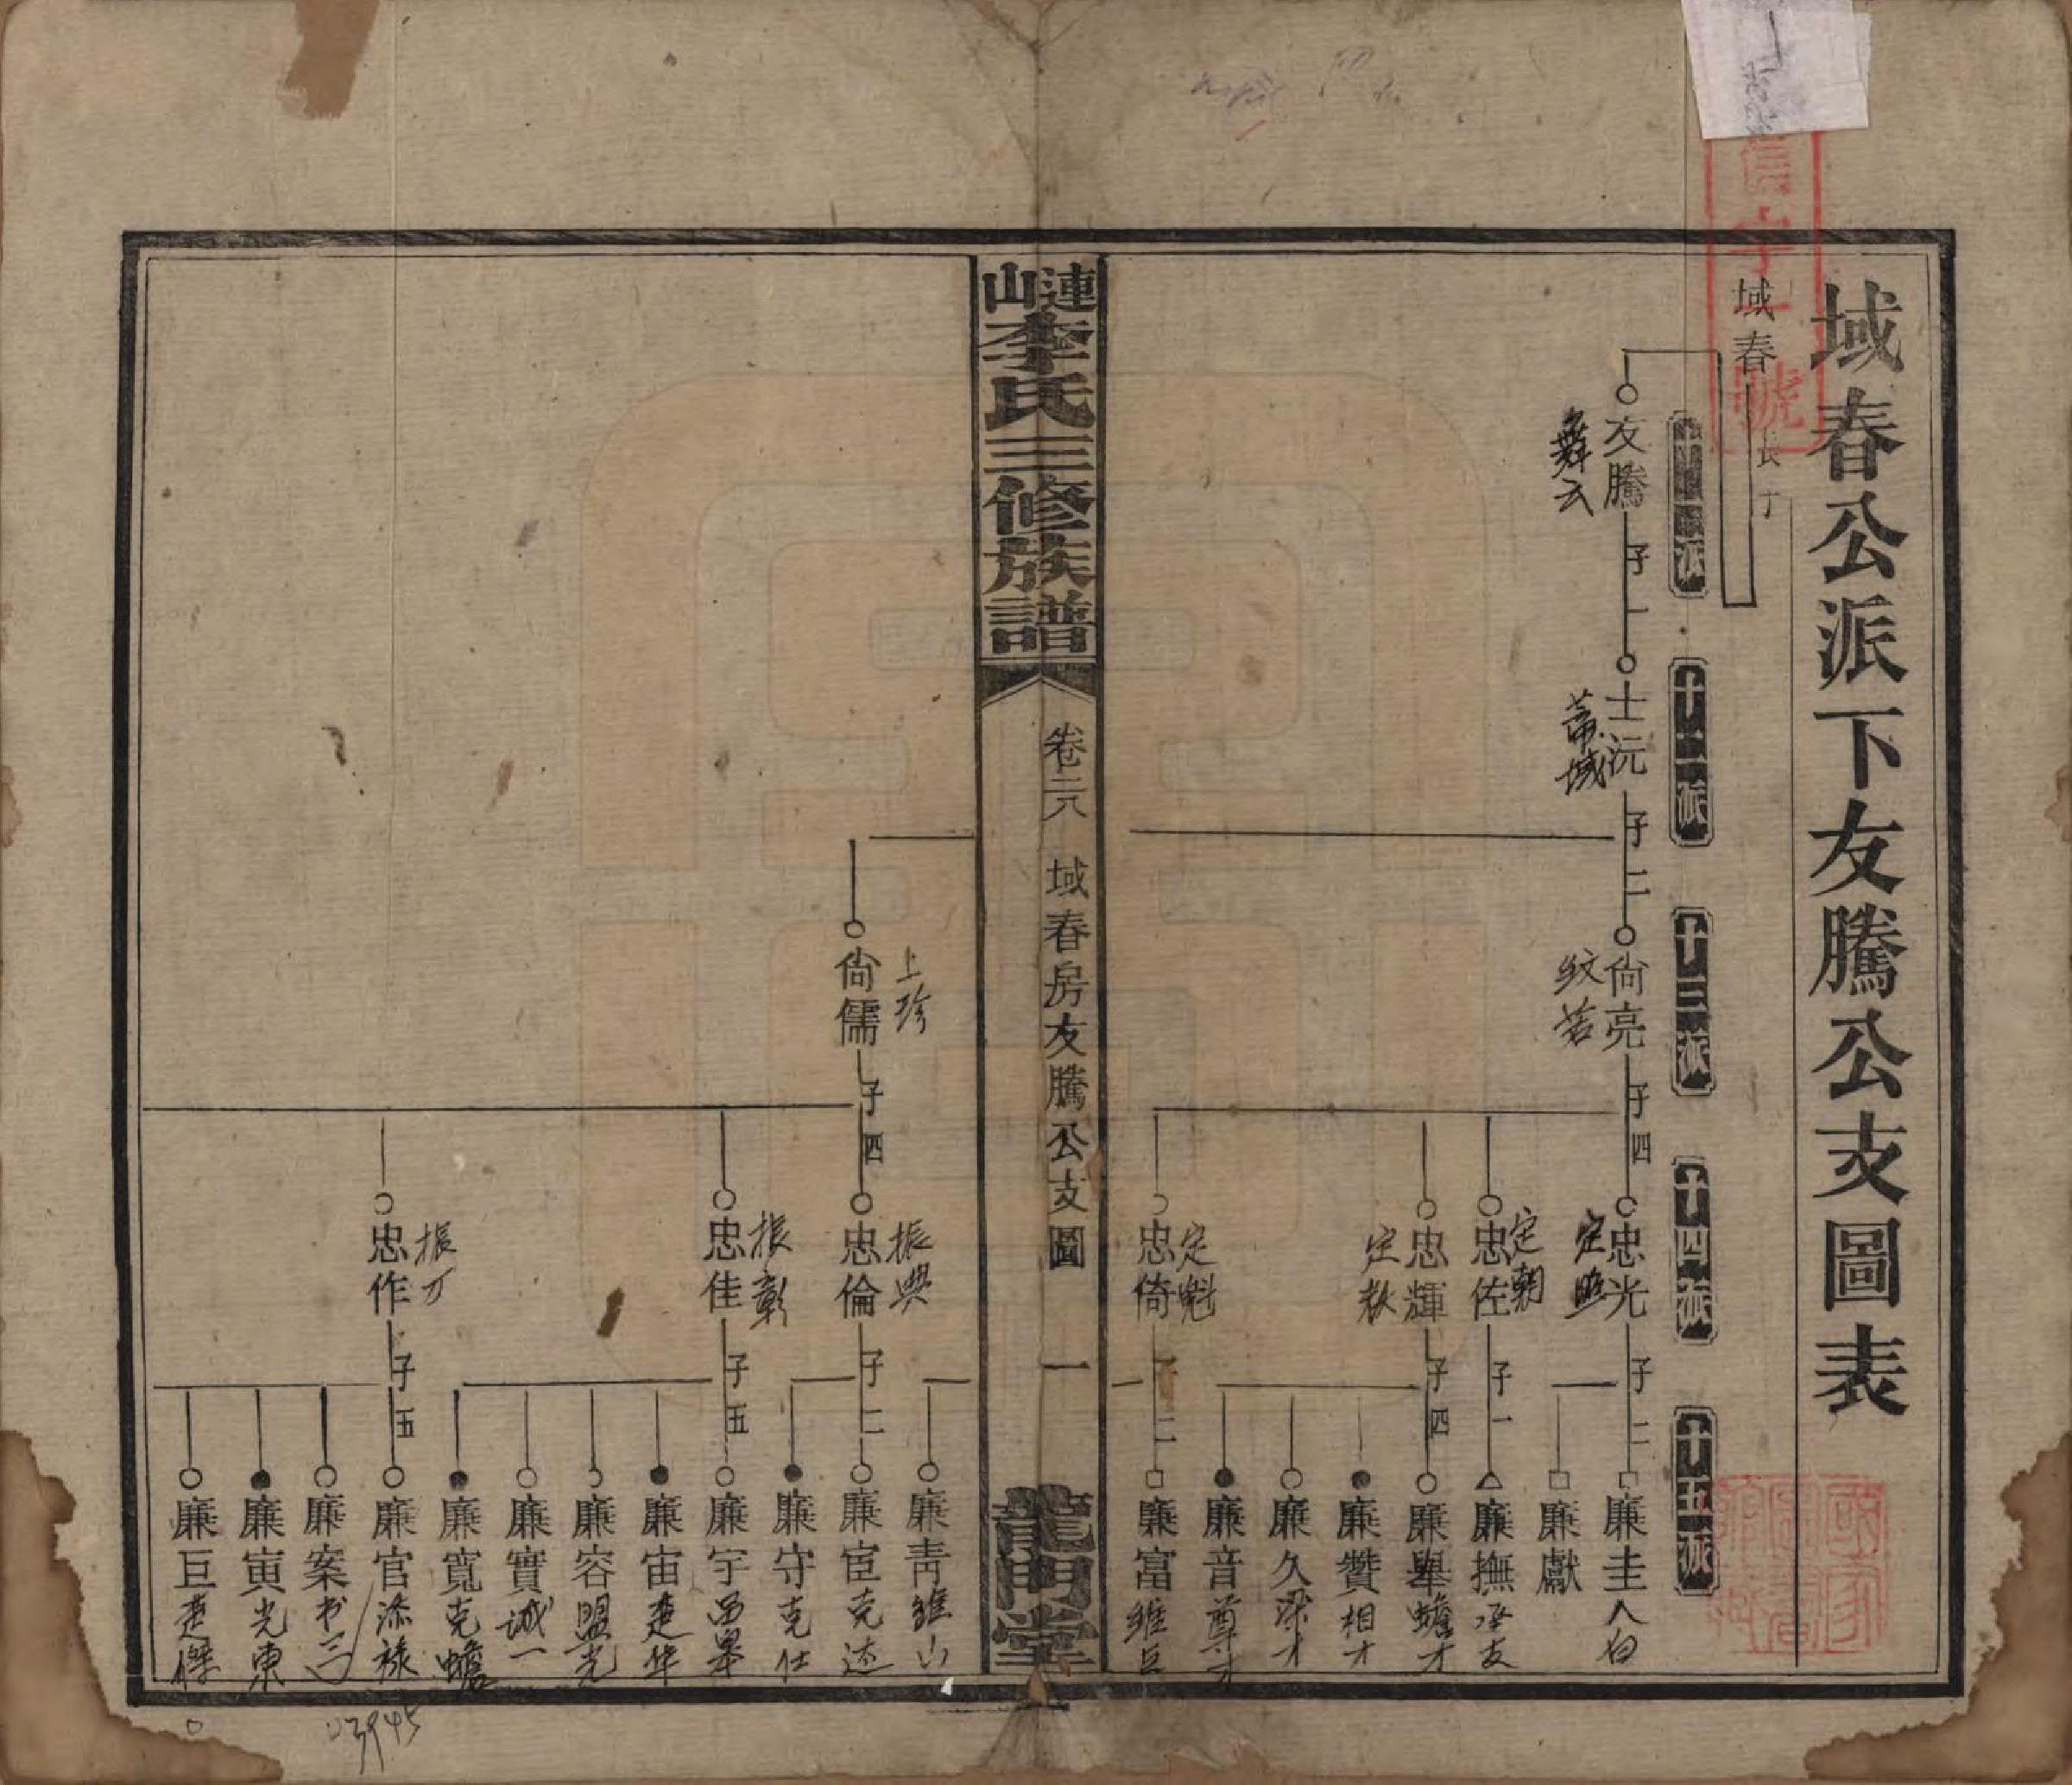 域春公派下友騰公支圖表
域春 長丁
十一派
十二派
十三派
十四派
十五派
友騰 子一
舞云
士沅 子二
尚亮 子四
紋若
忠光 子二
定
廉圭
廉獻
忠佐 子一
定朝
廉撫
忠輝 子四
定猷
廉舉 蟾才
廉贊 相才
廉久
廉音 尊才
忠倚 子二
定魁
廉富 維巨
連山李氏三修族譜
卷二八 域春房友騰公支圖 一
龍門堂
廉青 維山
尚儒 子四
上珍
忠倫 子二
振興
廉宦 克述
廉守 克仕
忠佳 子五
振彰
廉宇 西畢
廉宙 楚华
廉容 盟光
廉實 誠一
廉寬 克蟾
忠作 子五
振万
廉官 添祿
廉案 书三
廉寅 光東
廉巨 楚傑
03945